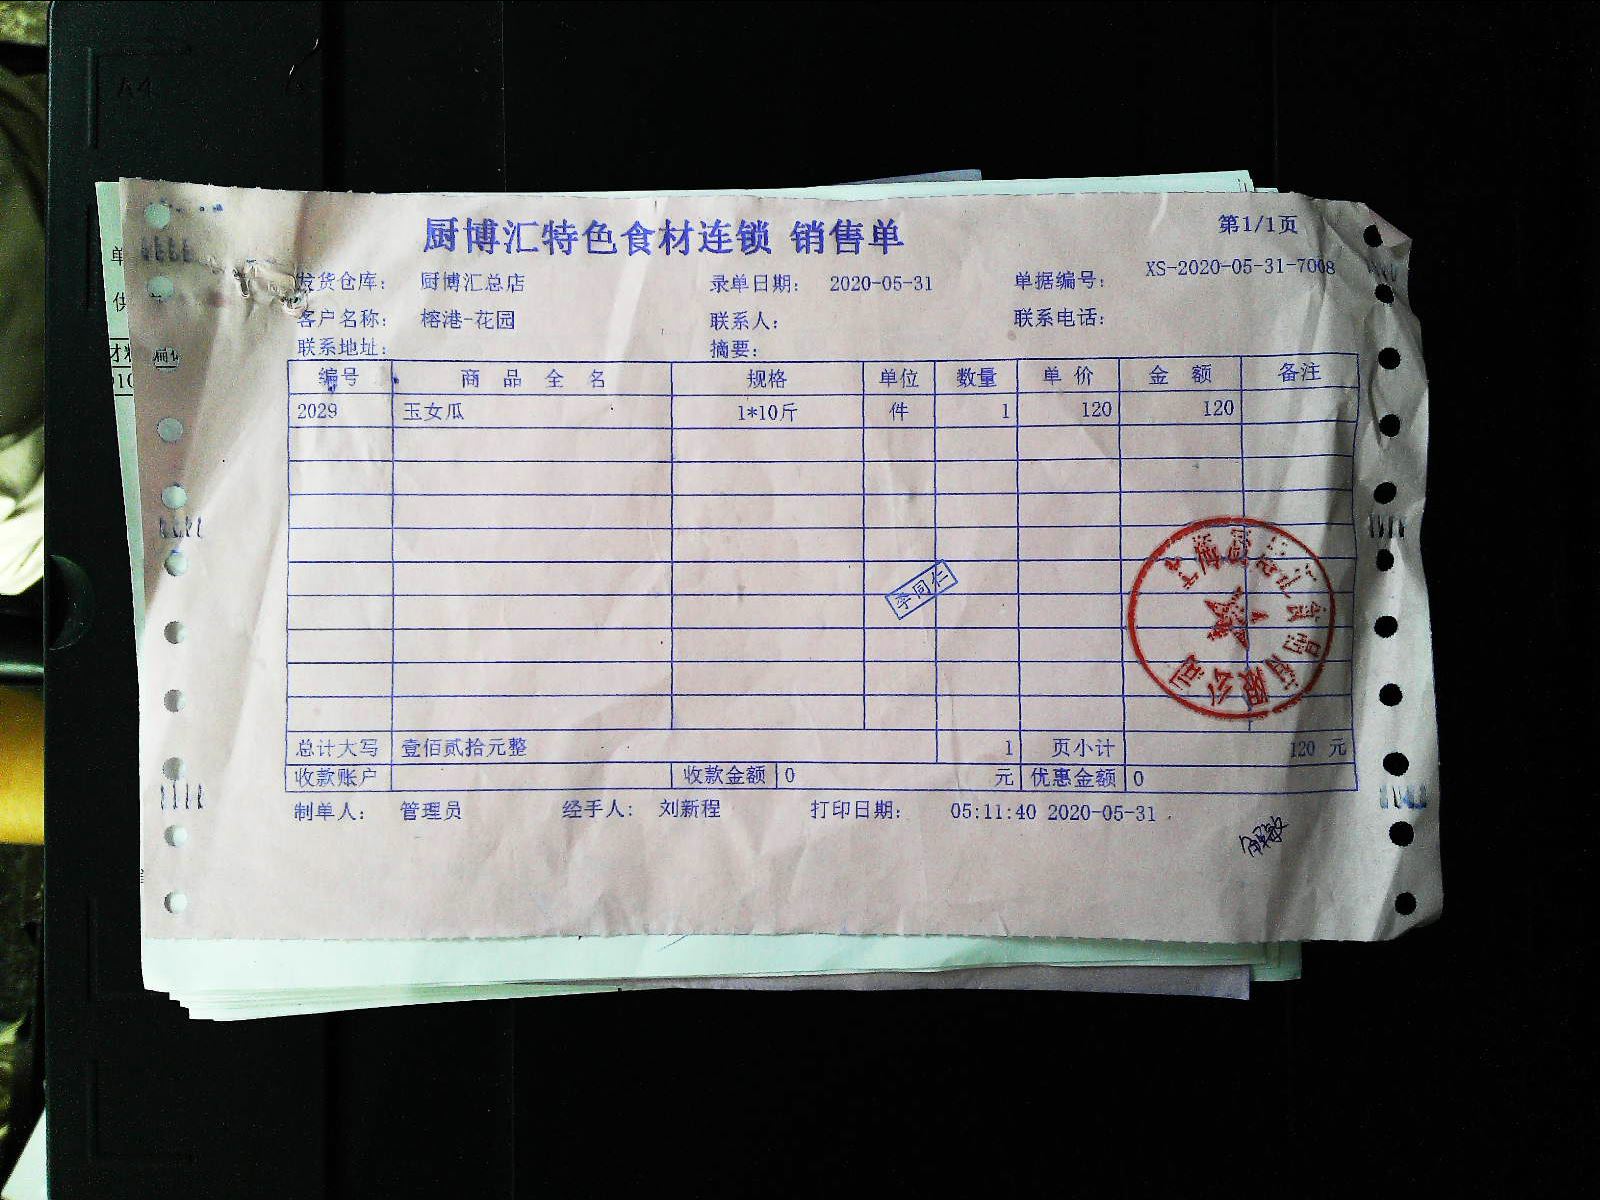 厨博汇特色食材连锁 销售单
第1/1页
发货仓库: 厨博汇总店 录单日期: 2020-05-31 单据编号: XS-2020-05-31-7008
客户名称: 榕港-花园 联系人: 联系电话:
联系地址: 摘要:
编号 商品全名 规格 单位 数量 单价 金额 备注
2029 玉女瓜 1*10斤 件 1 120 120
李同仁
总计大写 壹佰贰拾元整 1 页小计 120 元
收款账户 收款金额 0 元 优惠金额 0
制单人: 管理员 经手人: 刘新程 打印日期: 05:11:40 2020-05-31